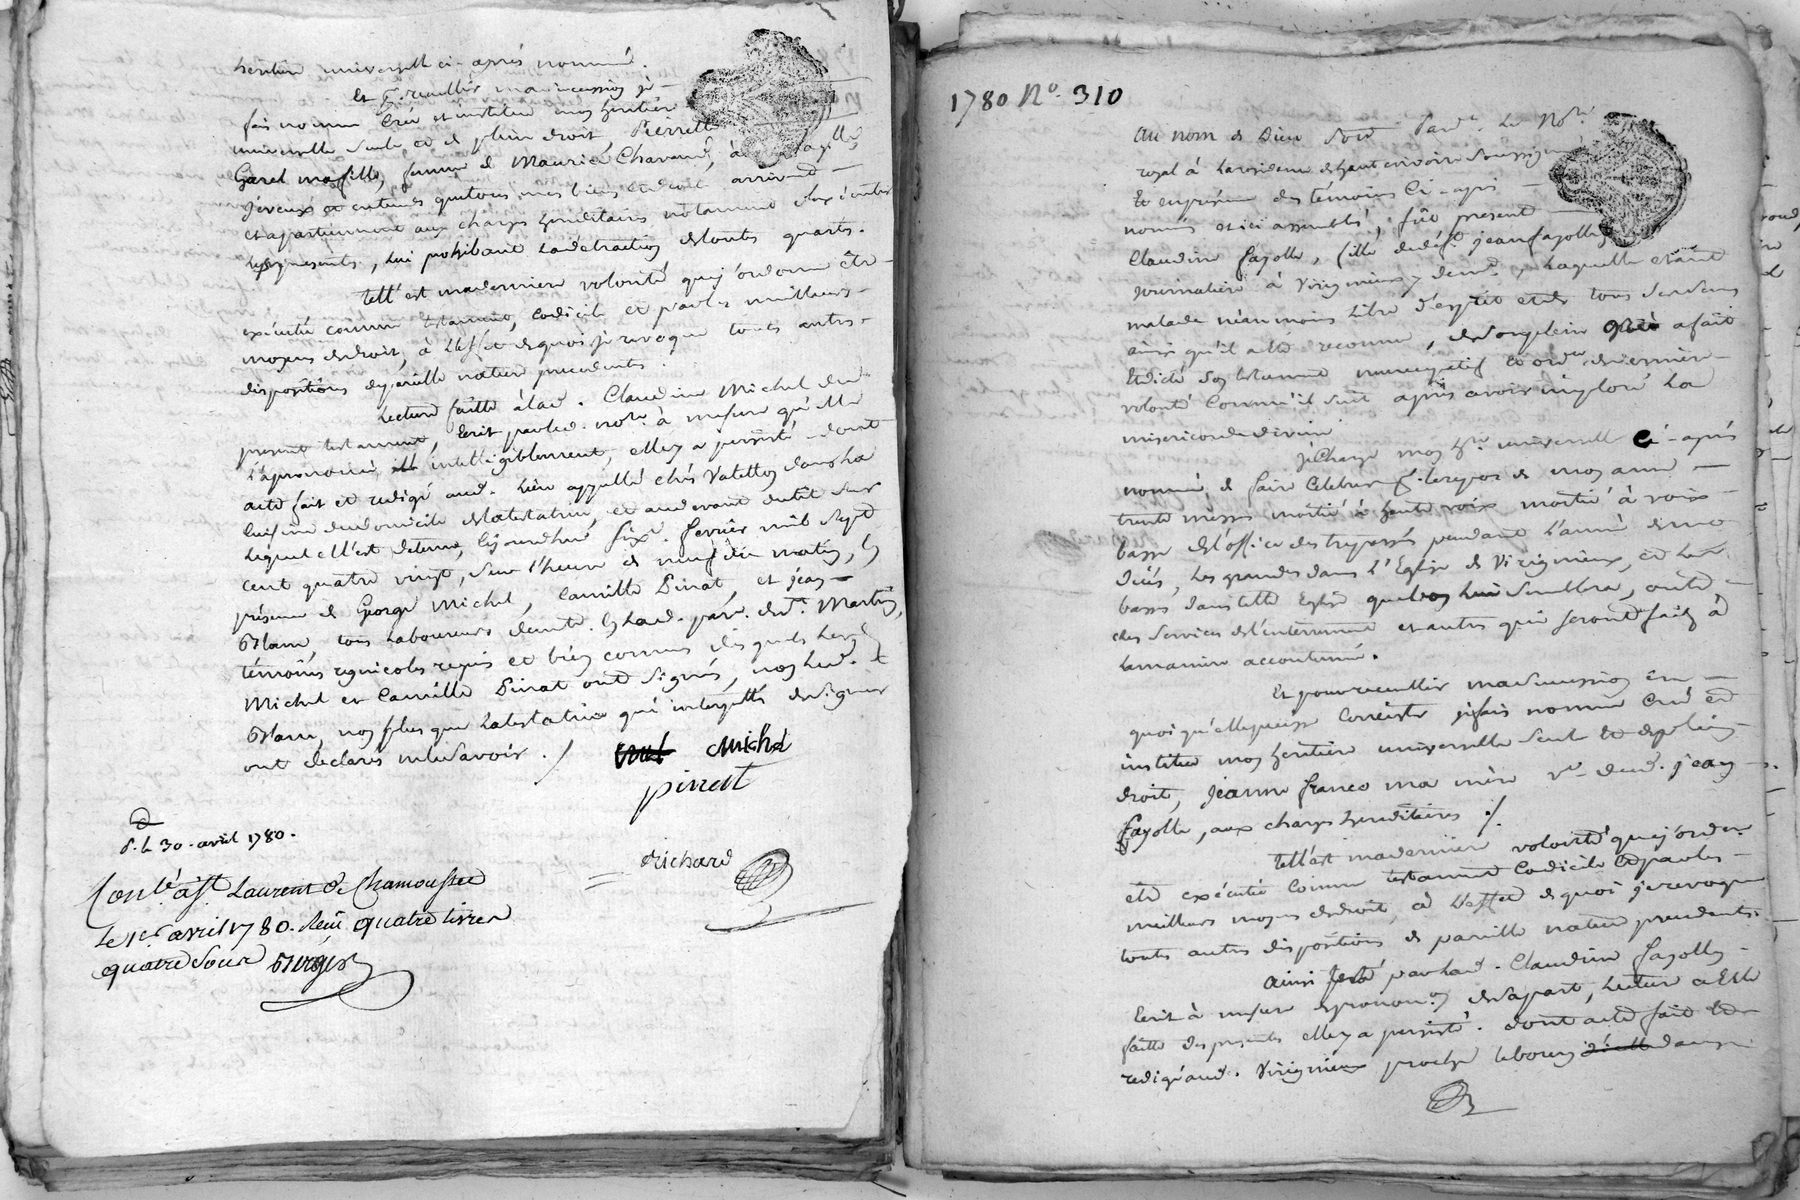 héritière universelle ci-après nommée.
Et p. recueillir ma succession je
fais nomme crée et institue mon héritière
universelle seule et de plein droit Pierrette
Garel ma fille, femme de Maurice Chavand, à
je veux et entends que tous mes biens et droits arrivent
et apartiennent aux charges héréditaires notamment
, lui prohibant la détraction de toutes quartes.
Tell' est ma dernière volonté que j'ordonne être
exécutée comme testament, codicile et par les meilleurs
moyens de droit, à l'effet de quoi je revoque toutes autres
dispositions de pareille nature précédentes.
Lecture faitte à lad. Claudine Michel du
present testament, écrit par led. not.re à mesure qu'elle
l'a prononcé intelligiblement, elle y a persisté dont
acte fait et redigé aud. lieu appellé chés Valetton dans la
cuisine du domicile de la testatrice, et au devant du lit sur
lequel ell'est detenue, cejourdhui six février mil sept
cent quatre vingt, sur l'heure de neuf du matin, en
présence de George Michel, Camille Pinat, et jean
Blanc, tous laboureurs demt. en lad. par. de St. Martin,
témoins regnicoles requis et bien connus desquels lesd.
Michel et Camille Pinat ont signés, non led.
Blanc, non plus que la testatrice qui interpellés de signer
ont declarés ne le savoir. /. Michel
pinat
Richard
d. le 30 avril 1780.
Conlé. à St. Laurent de Chamousset
le 1er. avril 1780. Reçu quatre livres
quatre sous
1780 No. 310
Au nom de Dieu soit Pardt. le Not.re
royal à la residence de haut rivoire soussigné
Et en présence des témoins ci-après
nommés et ici assemblés, fut présente
Claudine fayolle, fille de déft. jean fayolle,
journaliere à Virigneux y demt., laquelle etant
malade néanmoins libre d'esprit et de tous ses sens
ainsi qu'il a été reconnu, de son plein gré a fait
et dicté son testament nuncupatif et ord.re de derniere
volonté comme il suit après avoir imploré la
misericorde divine
je charge mon h.re universelle ci-après
nommée, de faire celebrer p. le repos de mon ame
trente messes moitié à haute voix moitié à voix
basse de l'office des trepassés pendant l'année de mo
décés, les grandes dans l'Eglise de Virigneux, et les
basses dans telle Eglise que bon lui semblera, outre
les services de l'enterrement et autres qui seront faits à
la maniere accoutumée.
Et pour recueillir ma succession en
quoi qu'elle puisse consister je fais nomme crée et
institue mon héritiere universelle seule et de plein
droit, jeanne franco ma mère v.e dud. jean
fayolle, aux charges héréditaires /.
Tell'est ma derniere volonté que j'ordon.e
etre exécutée comme testament codicile et par les
meilleurs moyens de droit, à l'effet de quoi je revoque
toutes autres dispositions de pareille nature precedentes.
Ainsi testé par lad. Claudine fayolle
Ecrit à mesure de prononc.on de sa part, lecture a Eté
faitte des presentes elle y a persisté. dont acte fait et
redigé aud. Virigneux proche le bourg dans